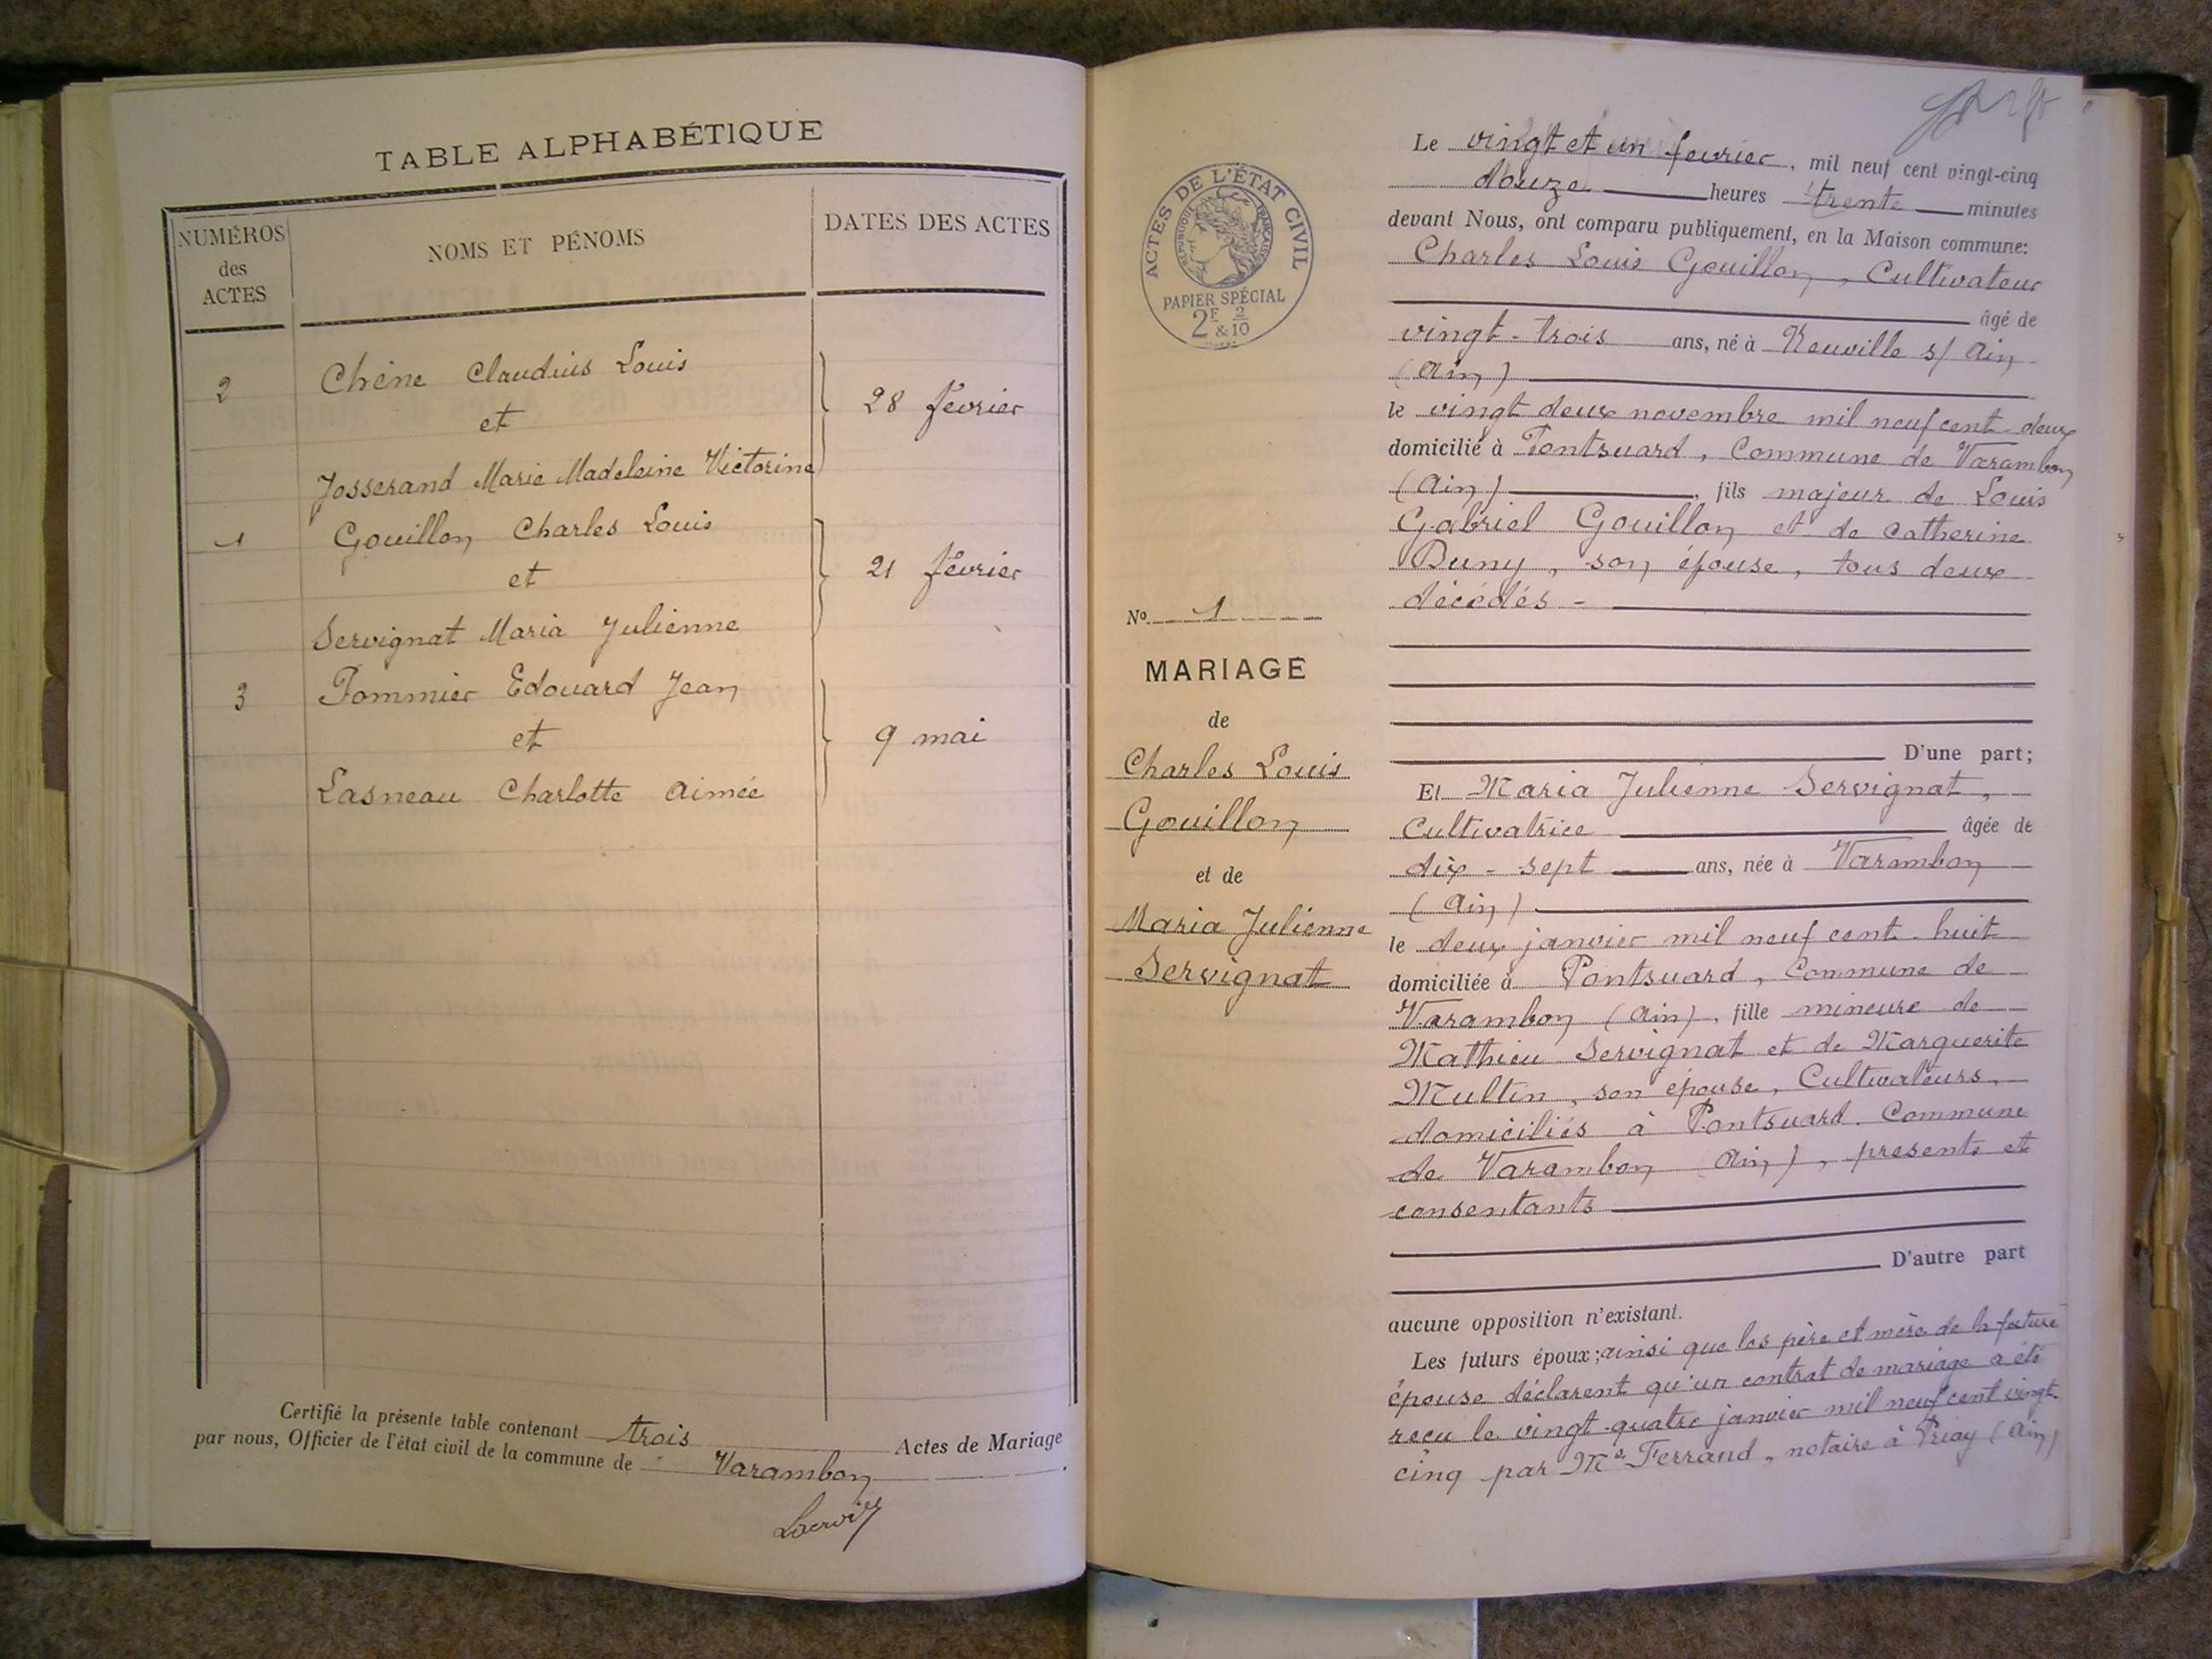 TABLE ALPHABÉTIQUE
NUMÉROS
des
ACTES
NOMS ET PÉNOMS
DATES DES ACTES
2
Chêne Claudius Louis
et
Josserand Marie Madeleine Victorine
28 février
1
Gouillon Charles Louis
et
Servignat Maria Julienne
21 février
3
Pommier Edouard Jean
et
Lasneau Charlotte Aimée
9 mai
Certifié la présente table contenant trois Actes de Mariage
par nous, Officier de l'état civil de la commune de Varambon.
ACTES DE L'ÉTAT CIVIL
RÉPUBLIQUE FRANÇAISE
PAPIER SPÉCIAL
2F & 2/10
No 1
MARIAGE
de
Charles Louis
Gouillon
et de
Maria Julienne
Servignat
Le vingt et un février, mil neuf cent vingt-cinq
douze heures trente minutes
devant Nous, ont comparu publiquement, en la Maison commune:
Charles Louis Gouillon, Cultivateur
âgé de
vingt-trois ans, né à Neuville s/ Ain
(Ain)
le vingt deux novembre mil neuf cent deux
domicilié à Pontsuard, Commune de Varambon
(Ain), fils majeur de Louis
Gabriel Gouillon et de Catherine
Buny, son épouse, tous deux
décédés -
D'une part;
Et Maria Julienne Servignat,
Cultivatrice âgée de
dix-sept ans, née à Varambon
(Ain)
le deux janvier mil neuf cent huit
domiciliée à Pontsuard, Commune de
Varambon (Ain), fille mineure de
Mathieu Servignat et de Marguerite
Multin, son épouse, Cultivateurs,
domiciliés à Pontsuard. Commune
de Varambon Ain), présents et
consentants
D'autre part
aucune opposition n'existant.
Les futurs époux; ainsi que les père et mère de la future
épouse déclarent qu'un contrat de mariage a été
reçu le vingt-quatre janvier mil neuf cent vingt-
cinq par Me Ferrand, notaire à Priay (Ain)